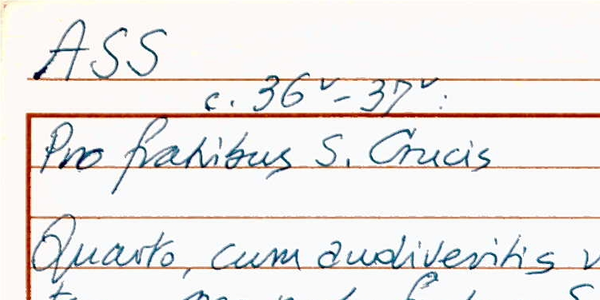 ASS
c. 36v - 37v:
Pro fratribus S. Crucis
Quarto, cum audiveritis